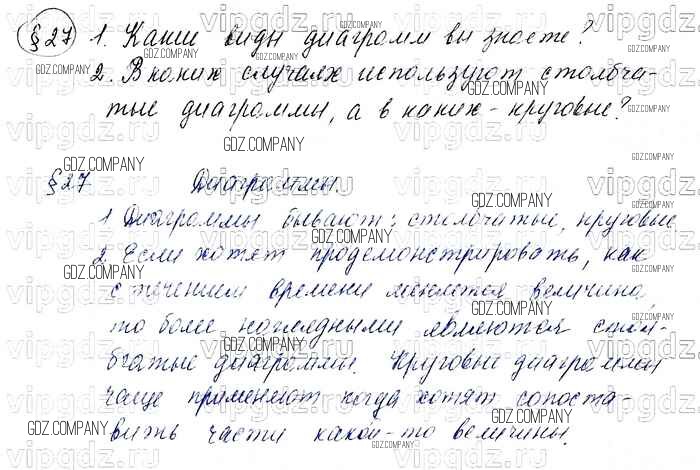 §27 1. Какие виды диаграмм вы знаете?
2. В каких случаях используют столбча-
тые диаграммы, а в каких - круговые?
§27 Диаграммы.
1. Диаграммы бывают: столбчатые, круговые
2. Если хотят продемонстрировать, как
с течением времени меняется величина,
то более наглядными являются стол-
бчатые диаграммы. Круговые диаграммы
чаще применяют когда хотят сопоста-
вить части какой-то величины.